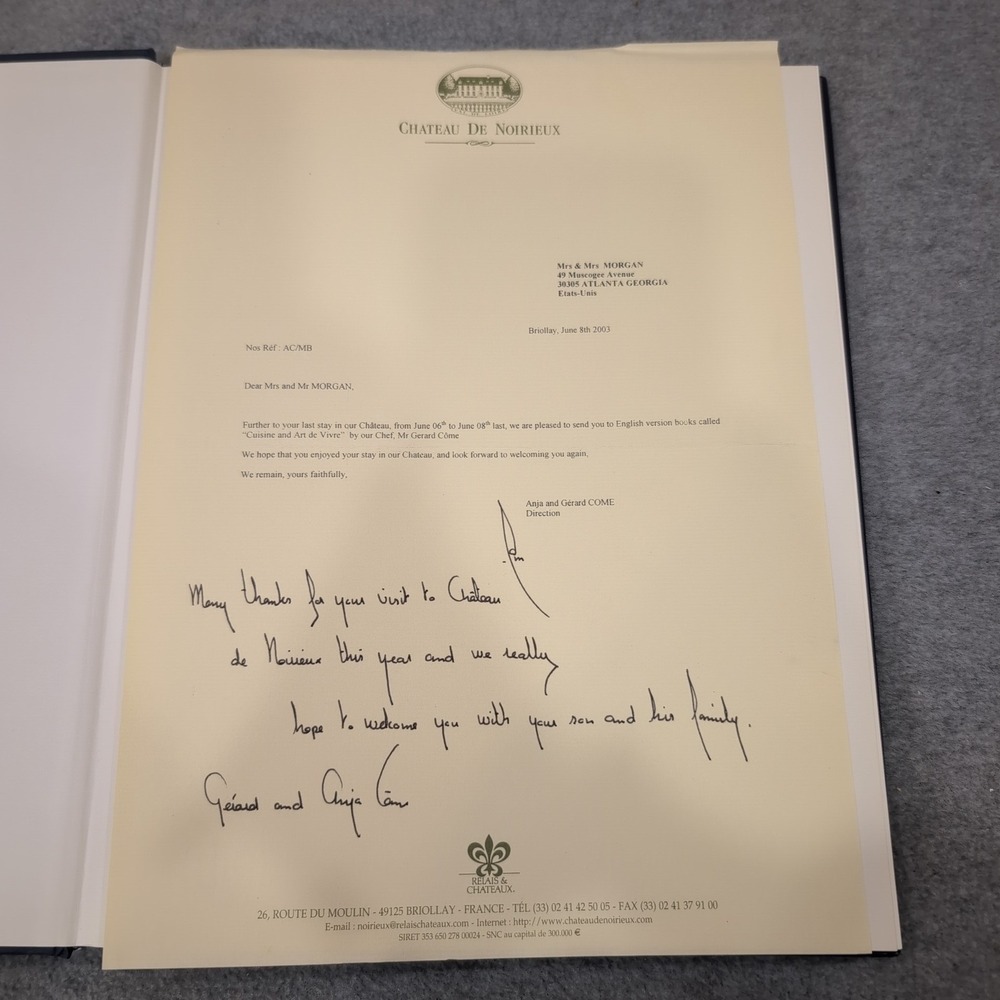 CHATEAU DE NOIRIEUX
Mrs & Mrs MORGAN
49 Muscogee Avenue
30305 ATLANTA GEORGIA
Etats-Unis
Briollay, June 8th 2003
Nos Réf : AC/MB
Dear Mrs and Mr MORGAN,
Further to your last stay in our Château, from June 06th to June 08th last, we are pleased to send you to English version books called
"Cuisine and Art de Vivre" by our Chef, Mr Gerard Côme
We hope that you enjoyed your stay in our Chateau, and look forward to welcoming you again,
We remain, yours faithfully,
Anja and Gérard COME
Direction
Many thanks for your visit to Château
de Noirieux this year and we really
hope to welcome you with your son and his family.
Gérard and Anja Côme
RELAIS &
CHATEAUX.
26, ROUTE DU MOULIN - 49125 BRIOLLAY - FRANCE - TÉL (33) 02 41 42 50 05 - FAX (33) 02 41 37 91 00
E-mail : noirieux@relaischateaux.com - Internet : http://www.chateaudenoirieux.com
SIRET 353 650 278 00024 - SNC au capital de 300.000 €